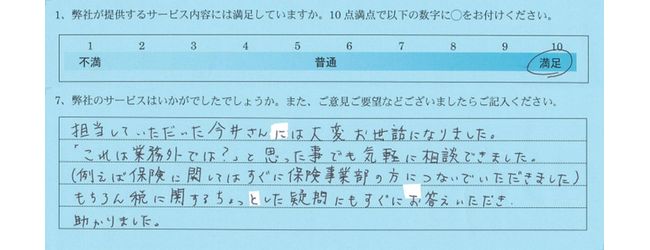 1、弊社が提供するサービス内容には満足していますか。10点満点で以下の数字に○をお付けください。
1 2 3 4 5 6 7 8 9 10
不満 普通 満足
7、弊社のサービスはいかがでしたでしょうか。また、ご意見ご要望などございましたらご記入ください。
担当していただいた今井さんには大変お世話になりました。
「これは業務外では?」と思った事でも気軽に相談できました。
(例えば保険に関してはすぐに保険事業部の方につないでいただきました)
もちろん税に関するちょっとした疑問にもすぐにお答えいただき、
助かりました。